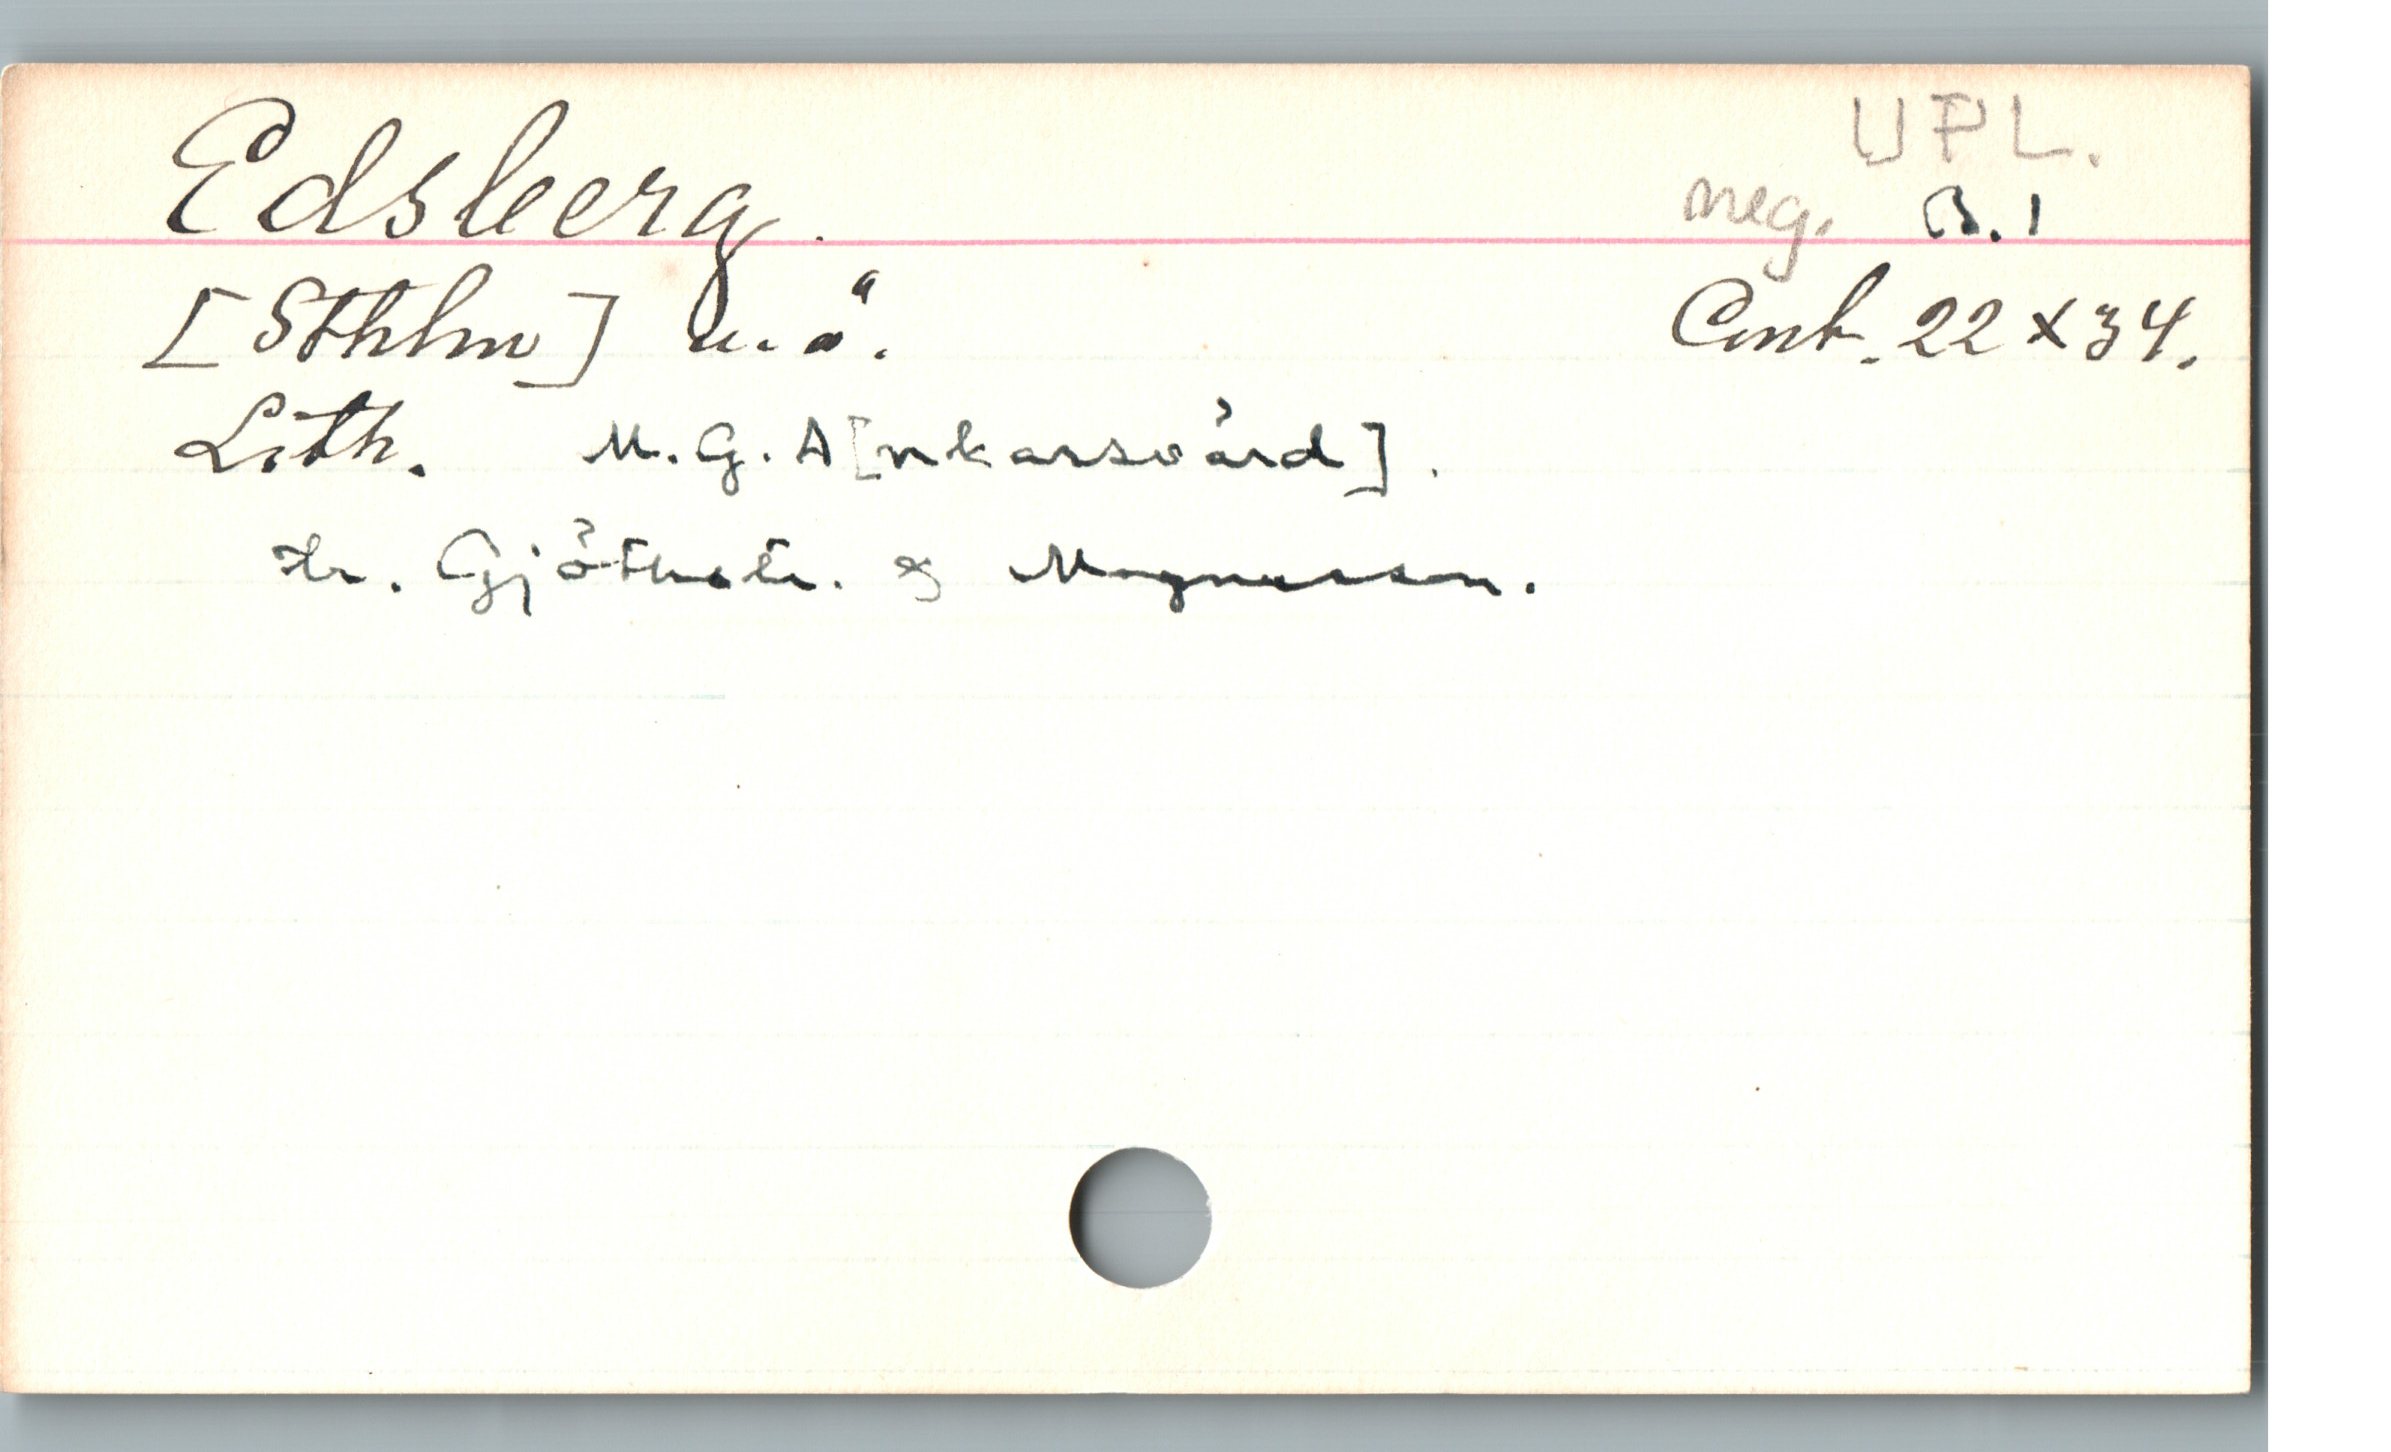 UPL.
Edsberg.
neg. B. 1
[Sthlm] u. å. Cmb. 22 x 34.
Lith. M. G. A[nkarsvärd].
tr. Gjöthstr. & Magnusson.